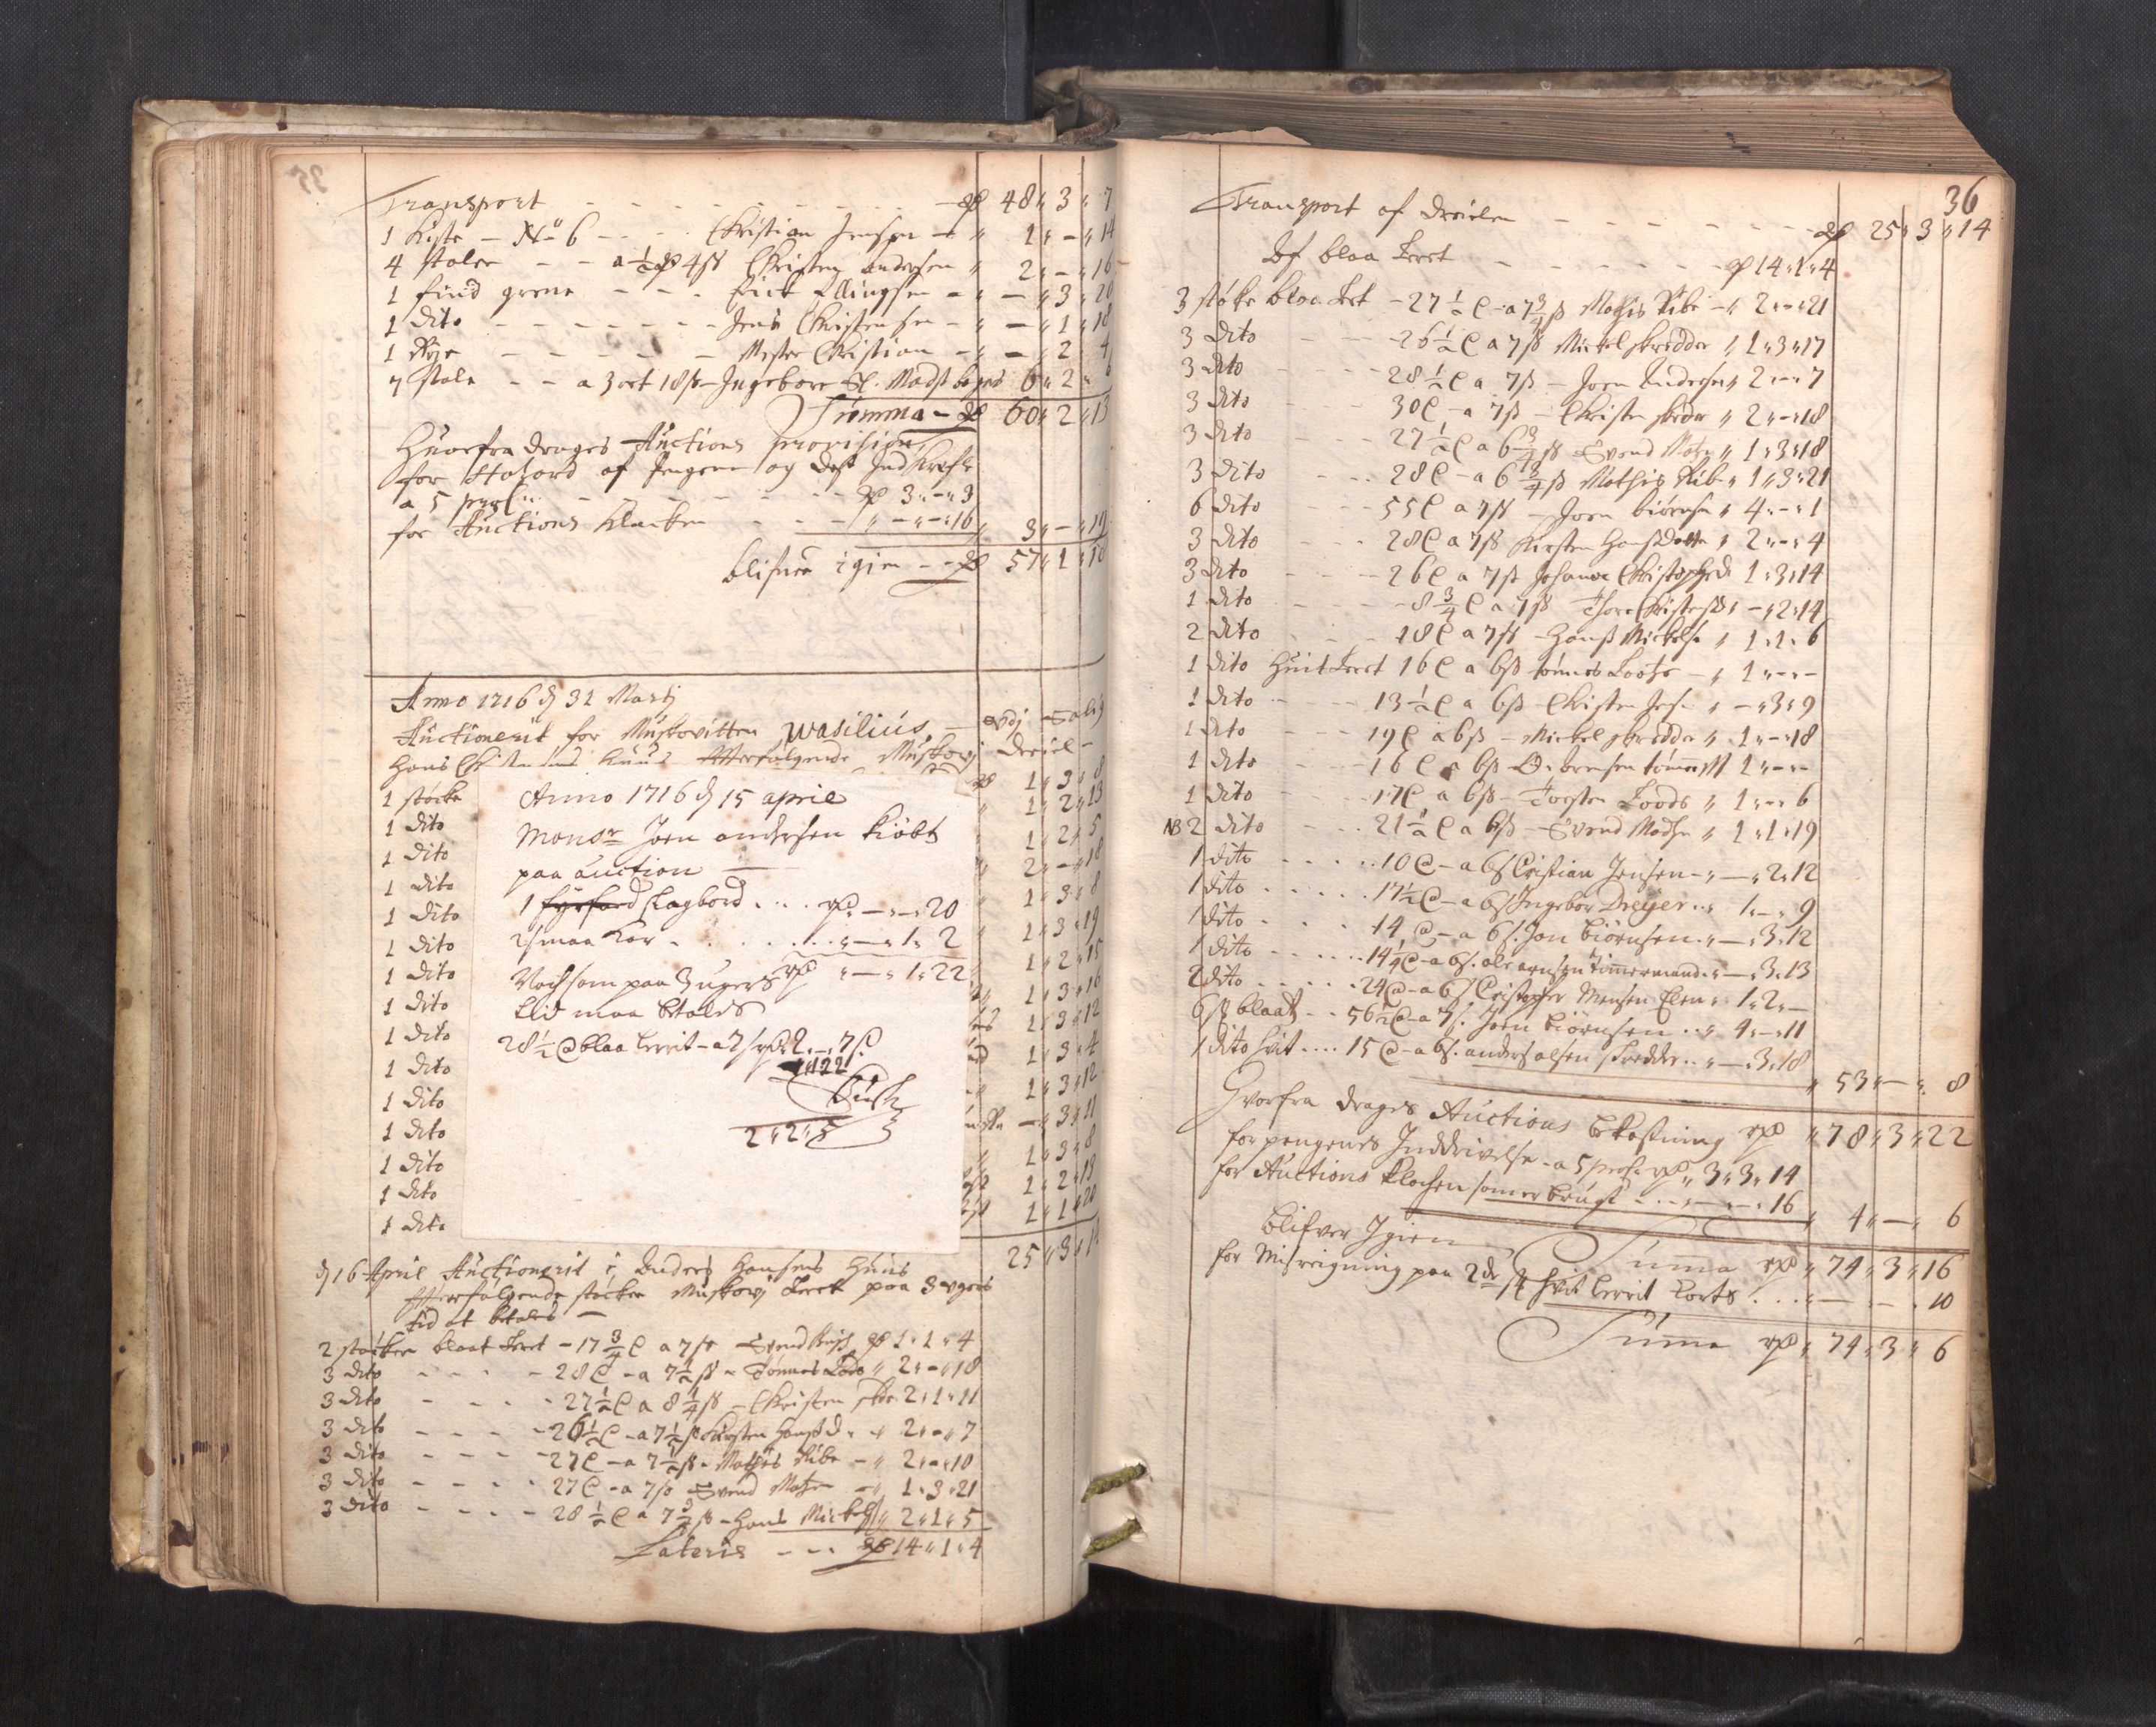 Transport - - - - - - - - rd 48 " 3 " 7
1 Kiste - No 6 - - - Christian Jensen - " 1 " - " 14
4 stoler - - a ½ rd 4 ß Christen andersen " 2 " - " 16
1 fiird grene - - - Erick Ellingsen - " - " 3 " 20
1 dito - - - - - - - Jens Christensen - " - " 1 " 18
1 - - - - - - Mester Christian - " - " 2 " 4
7 stole - - a 3 ort 18 ß - Ingebore Sl. Mads 6 " 2 " 6
Summa - rd 60 " 2 " 13
Huorfra drages Auctions provision
for af Pengene og dess
a 5 - - - - - - - rd 3 " - " 3
for Auctions Klacken - - - " - " - " 16 " 3 " - " 19
blifuer igien - - rd 57 " 1 " 18
Anno 1716 d 31 Martj
Auctionerit for Muskovitten Wasilius
Hans Christensens huus Efterfølgende Muskovj Dreiel -
1 støcke rd 1 " 3 " 8
1 dito " 1 " 2 " 13
1 dito " 1 " 2 " 5
1 dito " 2 " - " 18
1 dito " 1 " 3 " 8
1 dito " 1 " 3 " 19
1 dito " 1 " 2 " 15
1 dito " 1 " 3 " 16
1 dito 1 " 3 " 12
1 dito 1 " 3 " 4
1 dito " 1 " 3 " 12
1 dito - " 3 " 11
1 dito " 1 " 3 " 8
1 dito 1 " 2 " 18
1 dito 1 " 1 " 20
25 " 3 " 14
Anno 1716 d 15 april
Monsr Joen andersen kiøbt
paa auction
1 slagbord . . . rd - " - " 20
2 smaa Kar - . . . . . " - " 1 " 2
Noch som paa 3 ugers rd " - " 1 " 22
tid maa betales
28½ @ blaa lerrit - a 7 ß rd 2 " - " 7 ß
1 " 22
2 " 2 " 5
d 16 April Auctionerit i Anders Hansens Huus
Efterfølgende støcker Muskovj Leret paa 3 ugers
tid at betales -
2 støcker blaat Leret - 17¾ @ a 7 ß - Svend rd 1 " 1 " 4
3 dito - - - - 28 @ - a 7½ ß - Tønnes " 2 " - " 18
3 dito - - - - 27½ @ a 8¼ ß - Christen 2 " 1 " 11
3 dito - - - - 26½ @ - a 7½ ß Kirsten Hansd. - " 2 " - " 7
3 dito - - - - 27 @ - a 7½ ß - Mathis Ribe - " 2 " - " 10
3 dito - - - - 27 @ - a 7 ß Svend Matsen - " 1 " 3 " 21
3 dito - - - - 28½ @ a 7¾ ß - Hans Mickels " 2 " 1 " 5
Lateris - - - rd 14 " 1 " 4
36
Transport af dreielen - - - - - - - rd 25 " 3 " 14
Af blaa Leret - - - - - - rd 14 " 1 " 4
3 støke blaa Leret - 27½ @ - a 7¾ ß Mathis Ribe - " 2 " - " 21
3 dito - - 26½ @ a 7 ß Mickel skredder " 1 " 3 " 17
3 dito - - - 28½ @ a 7 ß - Joen Andersen " 2 " - " 7
3 dito - - - 30 @ - a 7 ß - Christen skreder " 2 " - " 18
3 dito - - - 27½ @ a 6¾ ß Svend Matsen " 1 " 3 " 18
3 dito - - - 28 @ - a 6¾ ß Mathis Ribe " 1 " 3 " 21
6 dito - - - 55 @ a 7 ß - Joen biørnsen " 4 " - " 1
3 dito - - - 28 @ a 7 ß Kirsten Hansdotter " 2 " - " 4
3 dito - - - 26 @ a 7 ß Johanne Christophers 1 " 3 " 14
1 dito - - - - 8¾ @ a 7 ß Thore Christens " - " 2 " 14
2 dito - - - 18 @ a 7 ß - Hans Mickels " 1 " 1 " 6
1 dito Huit Leret 16 @ a 6 ß tønnes - " 1 " - " -
1 dito - - - 13½ @ a 6 ß - Christen " - " 3 " 9
1 dito - - - 19 @ a 6 ß - Mickel skredder " 1 " - " 18
1 dito - - - 16 @ a 6 ß 1 " - " -
1 dito - - - 17 @ a 6 ß - Torsten Loods " 1 " - " 6
NB 2 dito - - - 21½ @ a 6 ß - Svend Madsen " 1 " 1 " 19
1 dito . . . . . 10 @ - a 6 ß Cristian Jensen - " - " 2 " 12
1 dito . . . . . 17½ @ - a 6 ß Ingebor Dreyer . . " 1 " - " 9
1 dito . . . . 14 @ - a 6 ß. Jon Biørnsen . " - " 3 " 12
1 dito . . . . . 14¼ @ - a 6 ß. ole arnsen Timmermand . " - " 3 " 13
2 dito . . . . . 24 @ - a 6 ß Cristopher Monsen " 1 " 2 " -
6 st blaat . . 56½ @ - a 7 ß. Joen Biørnsen . . " 4 " - " 11
1 dito hvit . . . . 15 @ - a 6 ß. anders olsen skredder . . " - " 3 " 18
" 53 " - " 8
Hvorfra drages Auctions bekostning rd " 78 " 3 " 22
for pengenes Inddrivelse - a 5 rd " 3 " 3 " 14
for Auctions klochen som er brugt . . " - " - " 16 " 4 " - " 6
Blifver Igien Summa rd " 74 " 3 " 16
for Misreigning paa 2de st hvit lerrit . . . " - " - " 10
Summa rd " 74 " 3 " 6